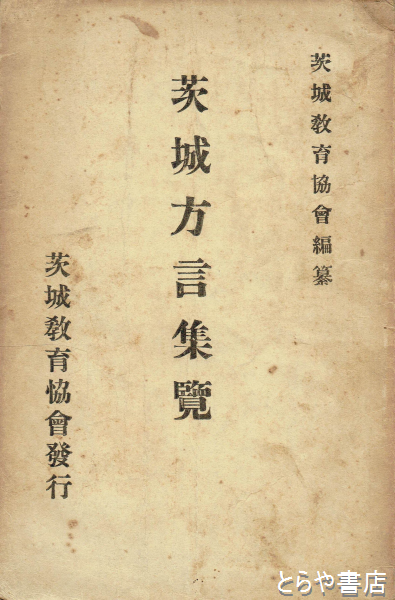 茨城敎育協會編纂
茨城方言集覽
茨城敎育恊會發行
とらや書店